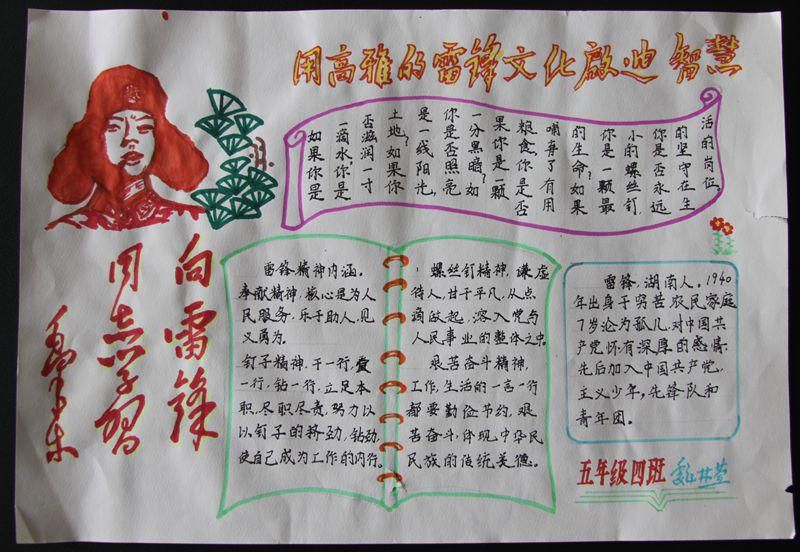 用高雅的雷锋文化啟迪智慧
如果你是
一滴水,你是
否滋润一寸
土地?如果你
是一线阳光,
你是否照亮
一分黑暗?如
果你是一颗
粮食,你是否
哺育了有用
的生命?如果
你是一颗最
小的螺丝钉,
你是否永远
的坚守在生
活的岗位。
向雷锋
同志学习
毛泽东
雷锋精神内涵。
奉献精神,核心是为人
民服务,乐于助人,见
义勇为。
钉子精神,干一行,爱
一行,钻一行,立足本
职,尽职尽责,努力以
以钉子的挤劲,钻劲,
使自己成为工作的内行。
螺丝钉精神,谦虚
待人,甘于平凡,从点
滴做起,溶入党与
人民事业的整体之中。
艰苦奋斗精神,
工作,生活的一言一行
都要勤俭节约,艰
苦奋斗,体现中华民
民族的传统美德。
雷锋,湖南人。1940
年出身于贫苦农民家庭
7岁沦为孤儿,对中国共
产党怀有深厚的感情。
先后加入中国共产党,
主义少年,先锋队和
青年团。
五年级四班